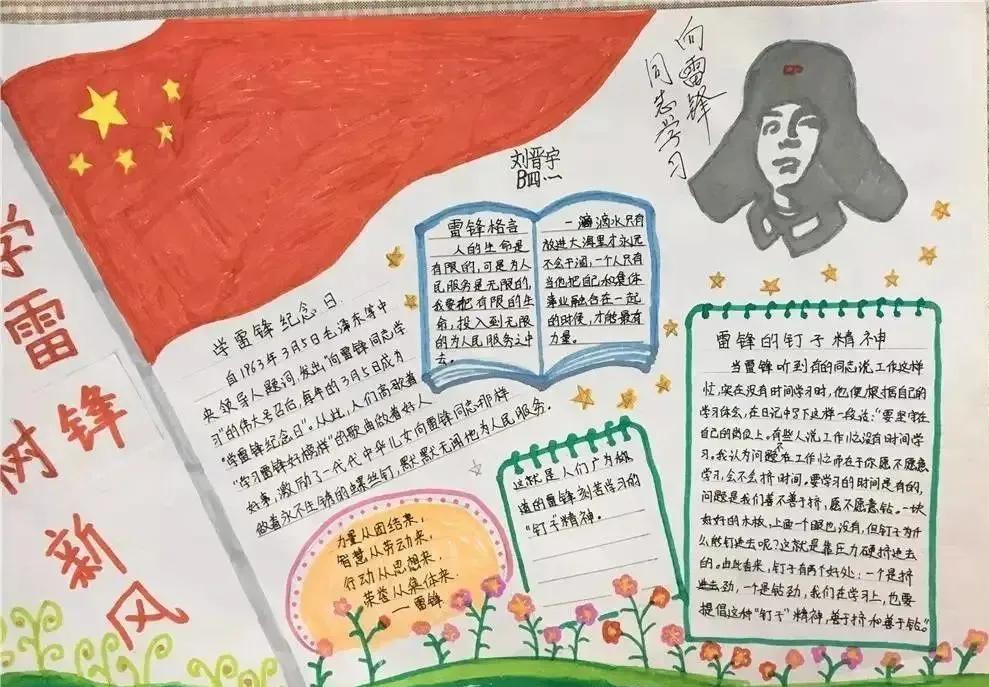 学雷锋
树新风
向雷锋
同志学习
刘晋宇
学雷锋纪念日
自1963年3月5日毛泽东等中
央领导人题词,发出“向雷锋同志学
习”的伟大号召后,每年的3月5日成为
“学雷锋纪念日”。从此,人们高歌着
“学习雷锋好榜样”的歌曲做着好人
好事,激励了一代代中华儿女向雷锋同志那样
做着永不生锈的螺丝钉,默默无闻地为人民服务。
雷锋格言
人的生命是
有限的,可是为人
民服务是无限的,
我要把有限的生
命,投入到无限
的为人民服务之中
去。
一滴滴水只有
放进大海里才永远
不会干涸,一个人只有
当他把自己和集体
事业融合在一起
的时候,才能最有
力量。
力量从团结来,
智慧从劳动来,
行动从思想来,
荣誉从集体来.
——雷锋
雷锋的钉子精神
当雷锋听到有的同志说工作这样
忙,实在没有时间学习时,他便根据自己的
学习体会,在日记中写下这样一段话:“要坚守在
自己的岗位上。有些人说工作忙没有时间学
习。我认为问题不在工作忙而在于你愿不愿意
学习,会不会挤时间。要学习的时间是有的,
问题是我们善不善于挤,愿不愿意钻。一块
好好的木板,上面一个眼也没有,但钉子为什
么能钉进去呢?这就是靠压力硬挤进去
的。由此看来,钉子有两个好处:一个是挤
进去劲,一个是钻劲,我们在学习上,也要
提倡这种“钉子”精神,善于挤和善于钻。”
这就是人们广为
道的雷锋刻苦学习的
“钉子”精神。